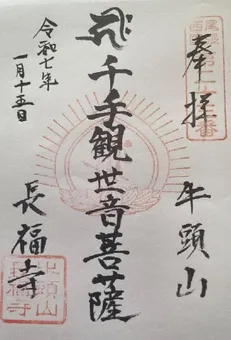 奉拝
牛頭山
千手観世音菩薩
長福寺
令和七年
一月十五日